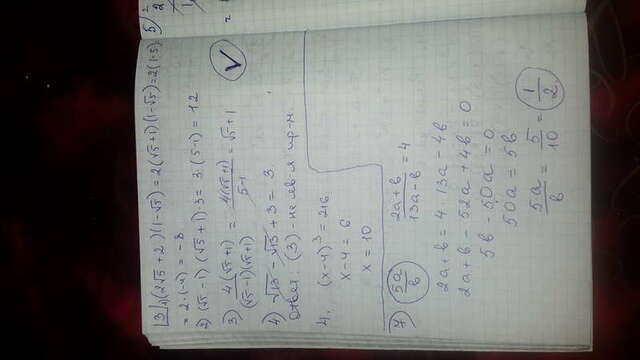 3 1) (2√5+2)(1-√5) = 2(√5+1)(1-√5) = 2(1-5)
= 2·(-4) = -8
2) (√5-1)(√5+1) 3 = 3·(5-1) = 12
3) 4(√5+1) / (√5-1)(√5+1) = 4(√5+1) / 5-1 = √5+1
4) √13 - √13 + 3 = 3
Ответ: (3) - не яв-я ир-м.
4. (x-4)³ = 216
x-4 = 6
x = 10
7) 5a/b 2a+b / 13a-b = 4
2a+b = 4·13a-4b
2a+b - 52a+4b = 0
5b - 50a = 0
50a = 5b
5a/b = 5/10 = 1/2
5)